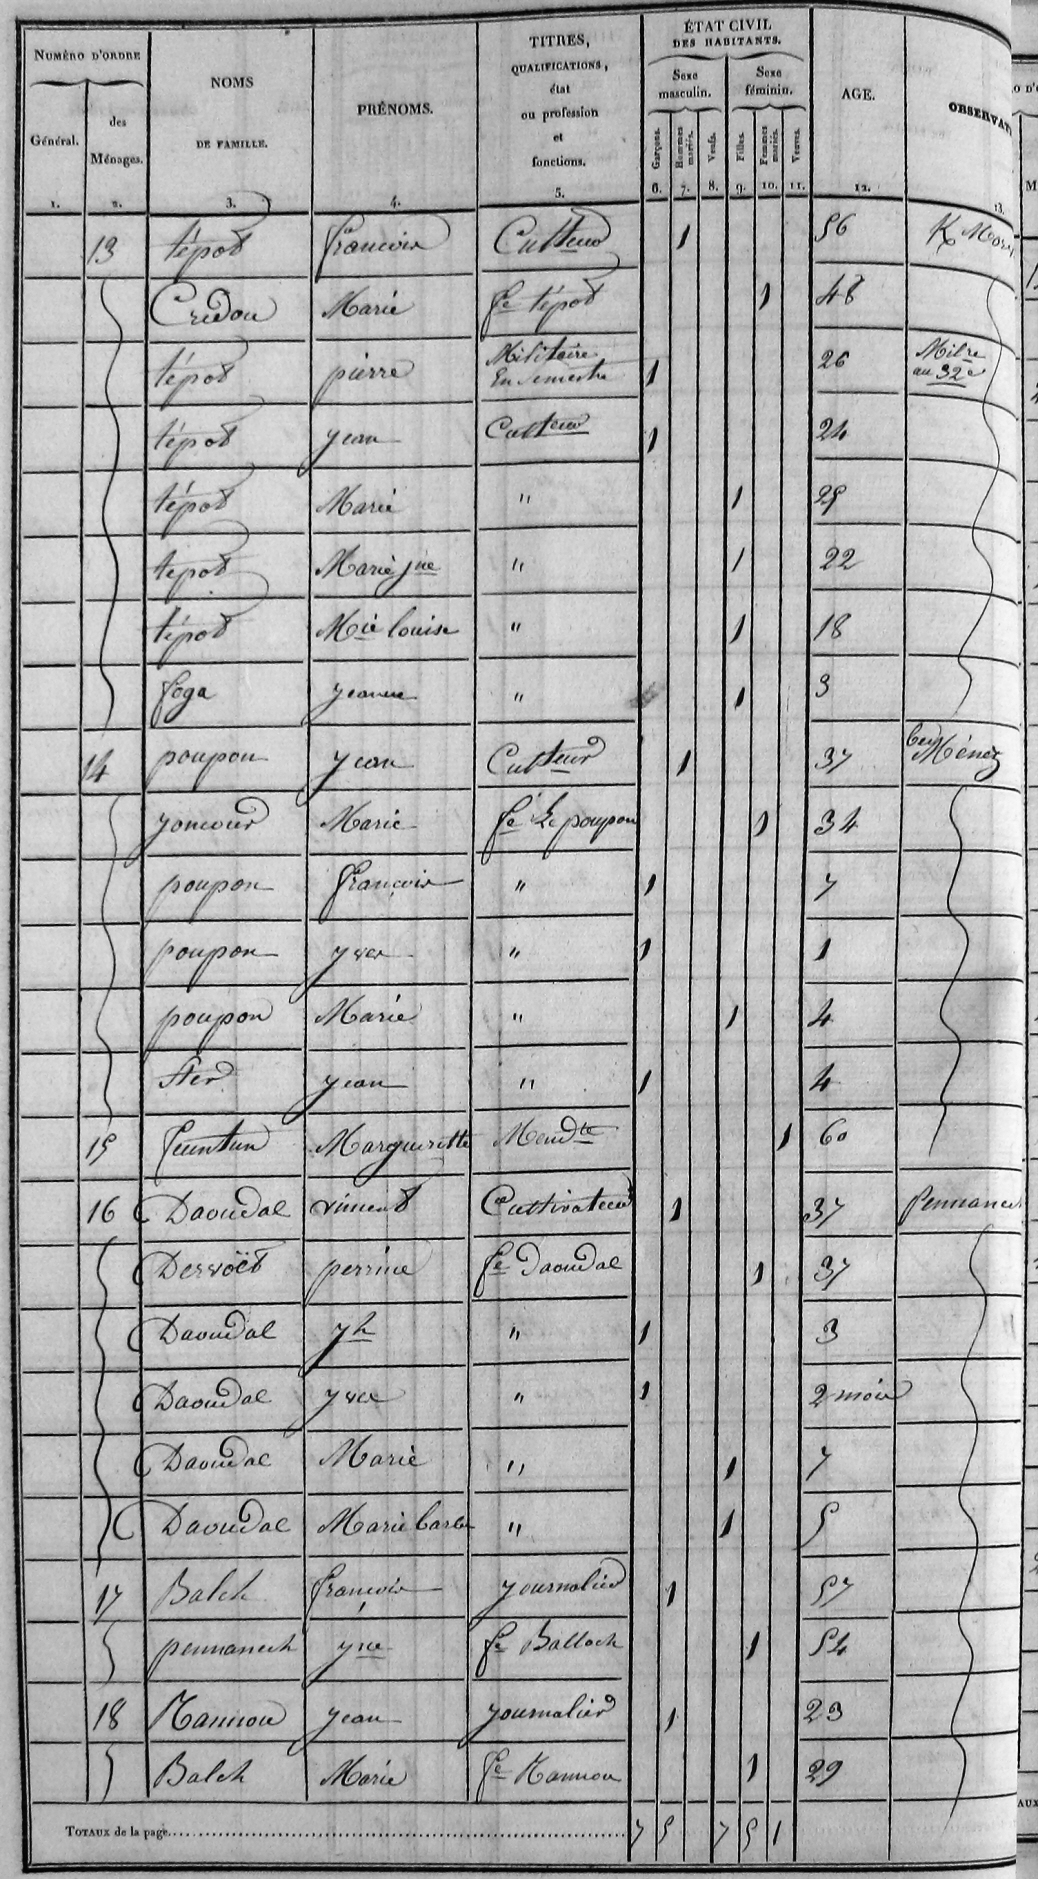 NUMÉRO D'ORDRE NOMS DE FAMILLE. PRÉNOMS. TITRES, QUALIFICATIONS, état ou profession et fonctions. ÉTAT CIVIL DES HABITANTS. AGE. OBSERVAT
Général. des Ménages. Sexe masculin. Sexe féminin.
Garçons. Hommes mariés. Veufs. Filles. Femmes mariés. Veuves.
1. 2. 3. 4. 5. 6. 7. 8. 9. 10. 11. 12. 13.
13 tépot francois Cultteur 1 56
Credou Marie fe tépot 1 48
tépot pierre Militaire En Semestre 1 26 Milre au 32e
tépot yean Cultteur 1 24
tépot Marie " 1 25
tépot Marie jne " 1 22
tépot Mie louise " 1 18
foga yeanne " 1 3
14 poupon yean Cultteur 1 37 Menez
yoncour Marie fe Le poupon 1 34
poupon françois " 1 7
poupon yves " 1 1
poupon Marie " 1 4
Ster yean " 1 4
15 feuntun Margueritte Mendte 1 60
16 Daoudal vincent Cultivateur 1 37 Pennanech
Dervoët perrine fe Daoudal 1 37
Daoudal yh " 1 3
Daoudal yves " 1 2 mois
Daoudal Marie " 1 7
Daoudal Marie barbe " 1 5
17 Balch francois yournalier 1 57
pennanech yne fe Balloch 1 54
18 Nannou yean yournalier 1 23
Balch Marie fe Nannou 1 29
TOTAUX de la page 7 5 7 5 1